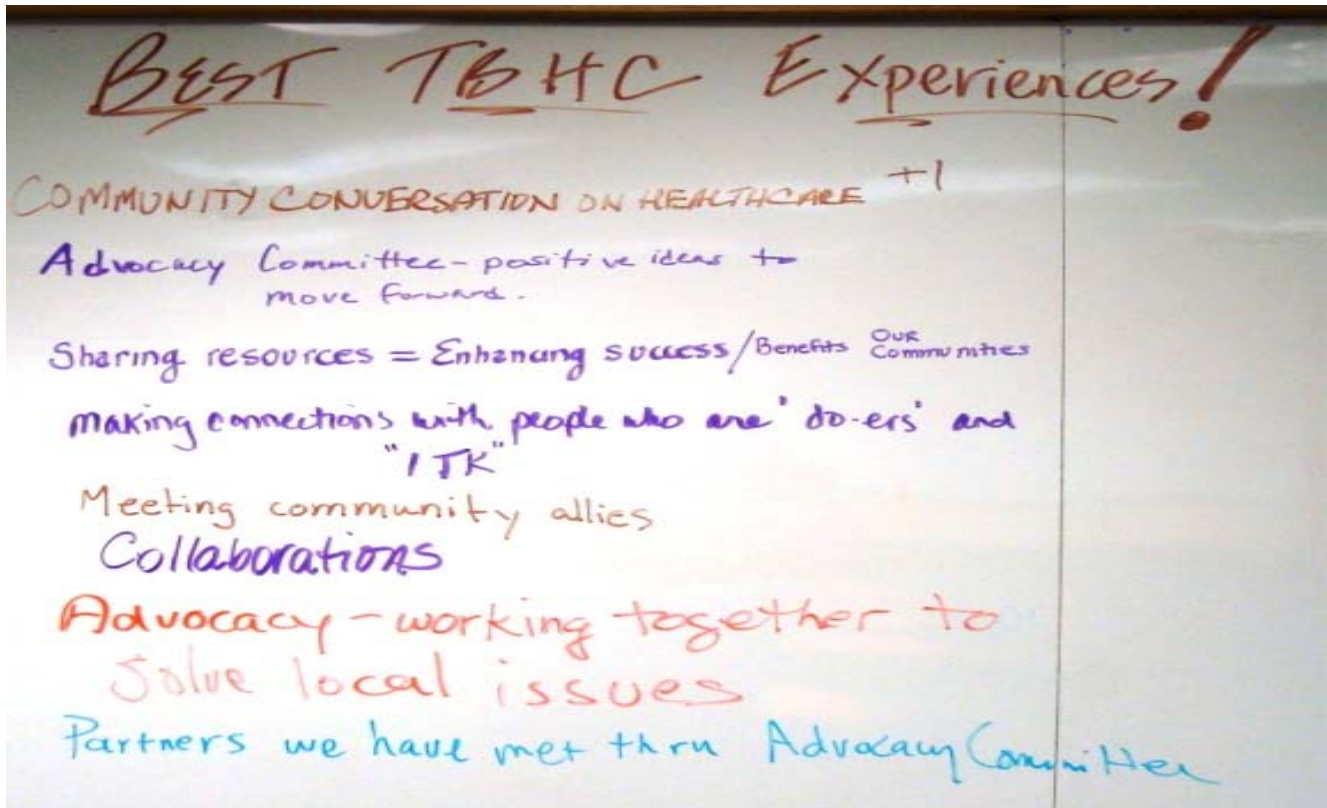 BEST TBHC Experiences!
COMMUNITY CONVERSATION ON HEALTHCARE +1
Advocacy Committee - positive ideas to
move forward.
Sharing resources = Enhancing success/Benefits Our Communities
making connections with people who are 'do-ers' and
"ITK"
Meeting community allies
Collaborations
Advocacy - working together to
solve local issues
Partners we have met thru Advocacy Committee